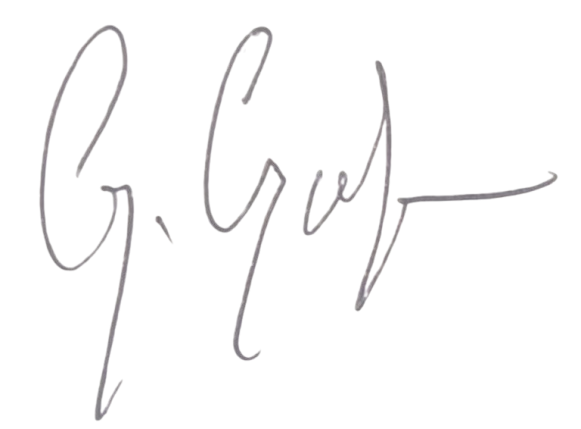 G. Graf